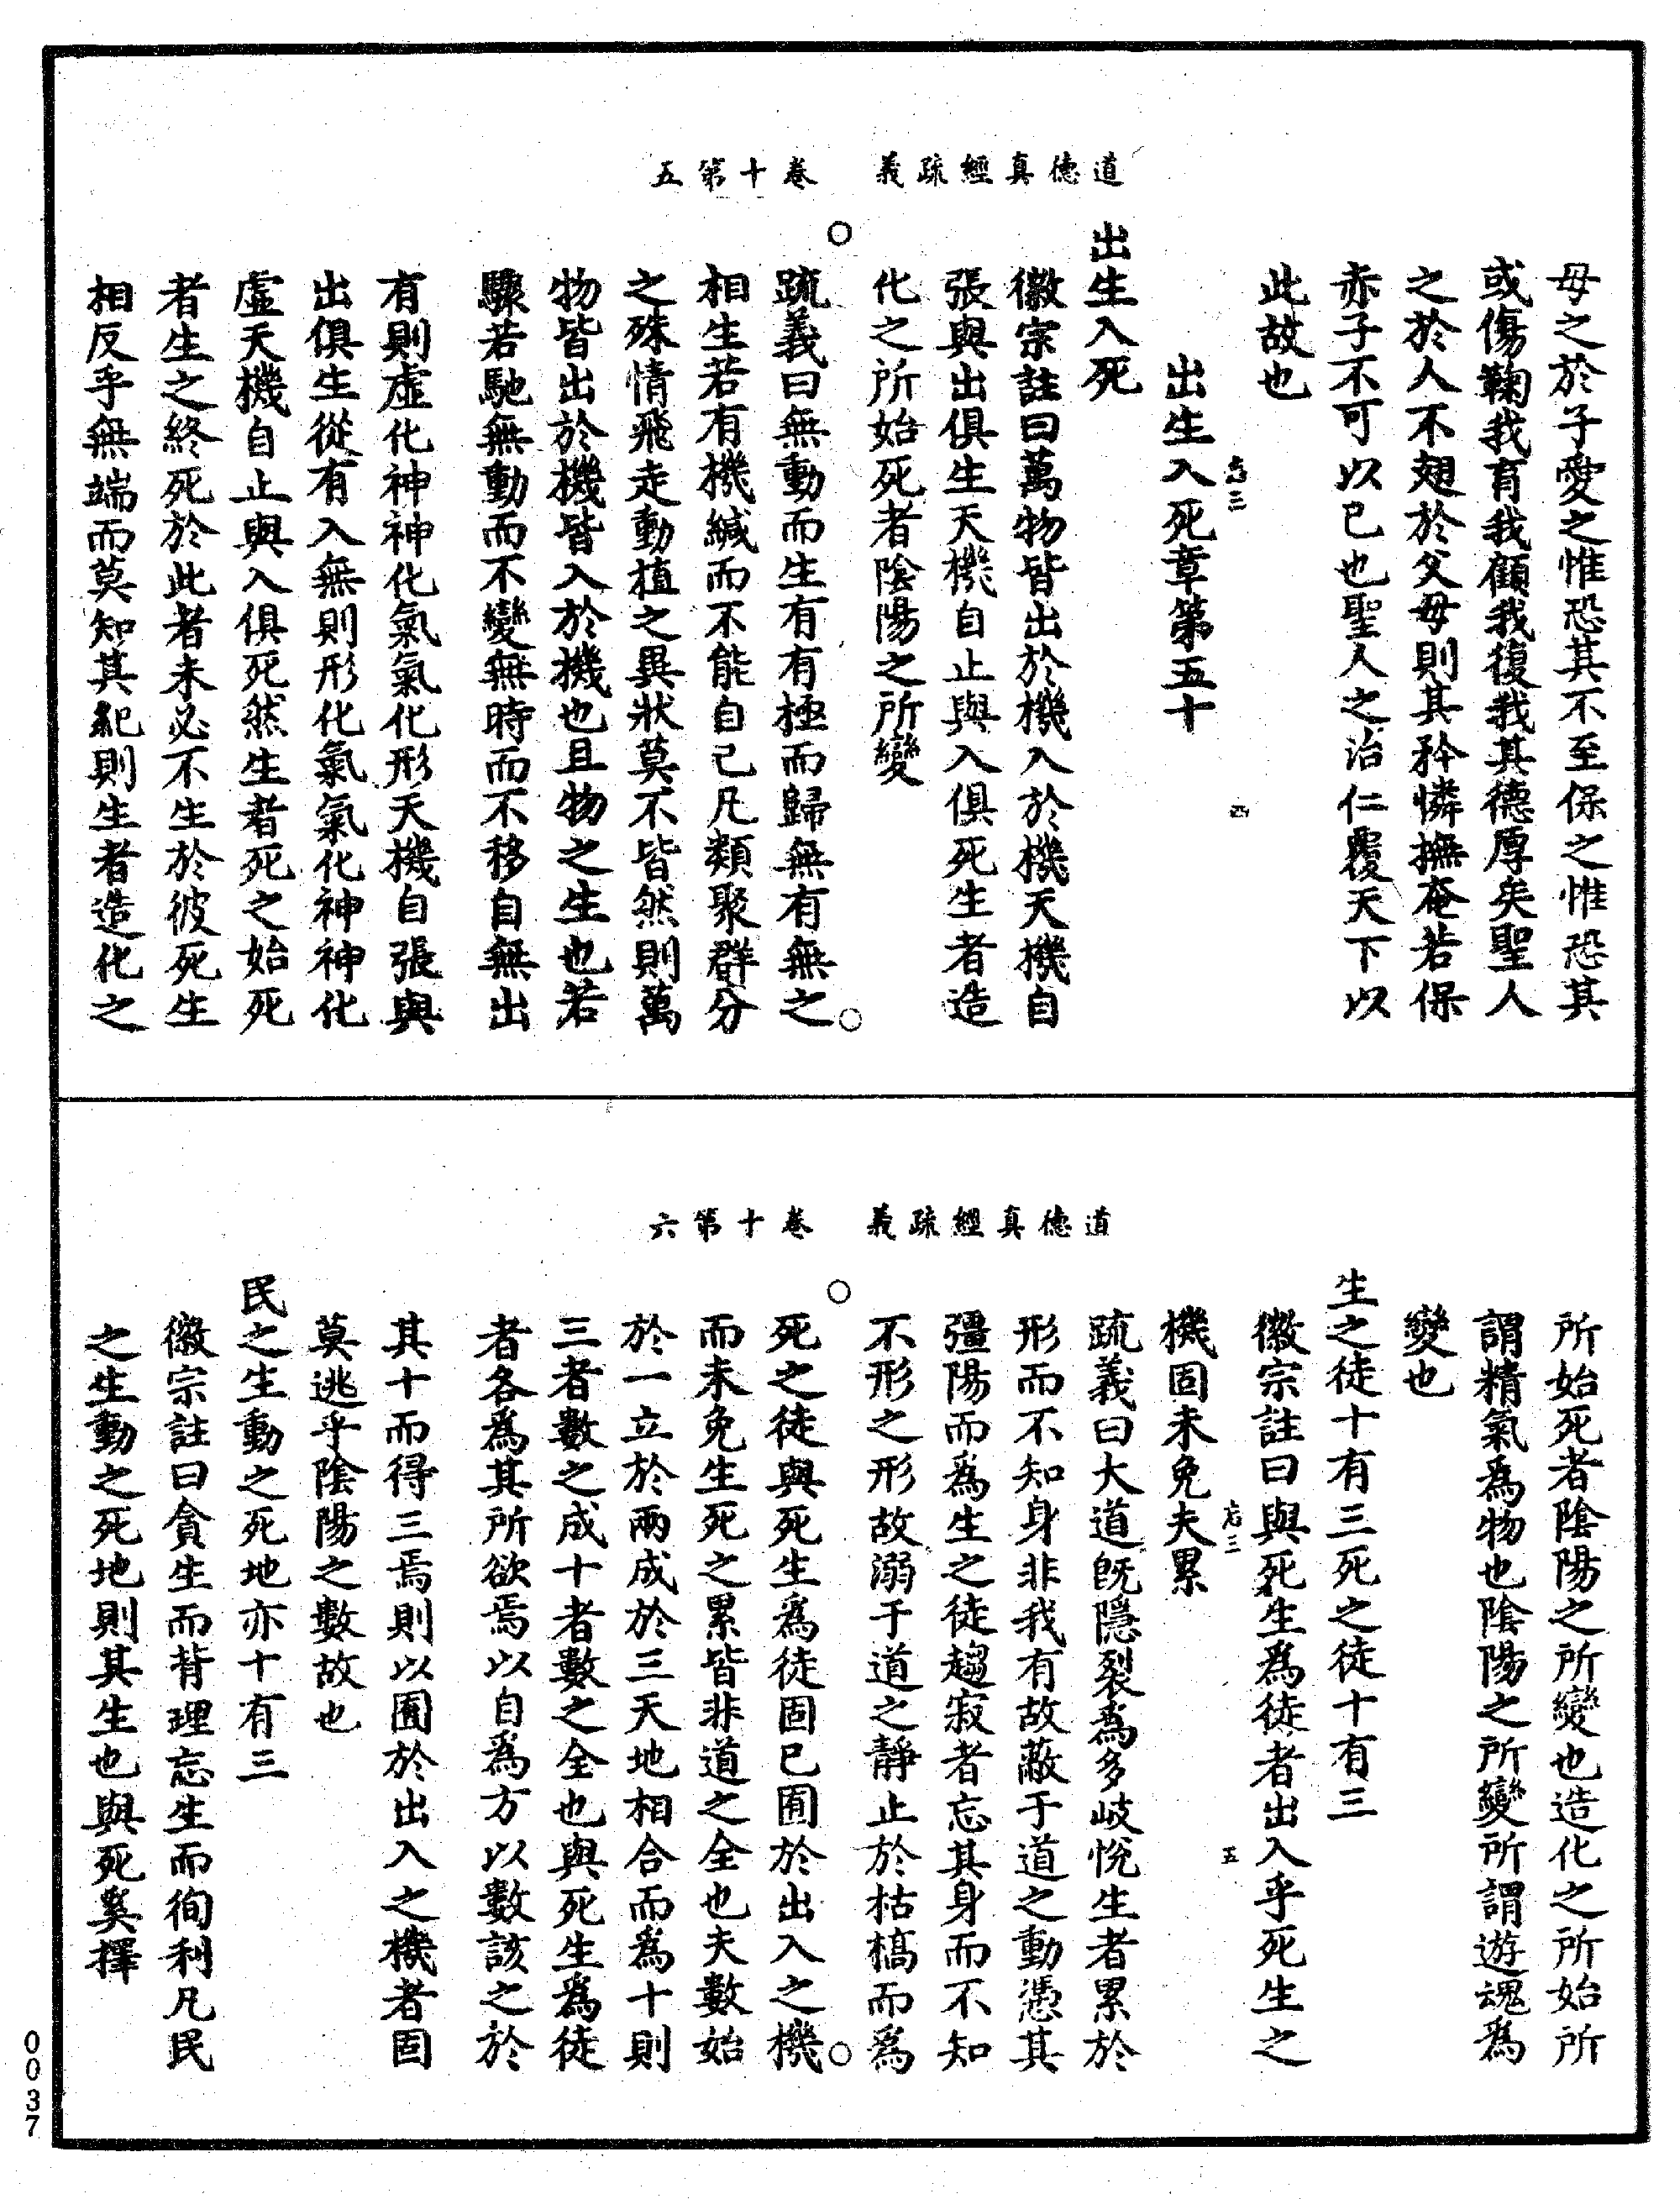 道德真經疏義　卷十第五
母之於子愛之惟恐其不至保之惟恐其
或傷鞠我育我顧我復我其德厚矣聖人
之於人不翅於父母則其矜憐撫奄若保
赤子不可以已也聖人之治仁覆天下以
此故也
四
出生入死章第五十
出生入死
徽宗註曰萬物皆出於機入於機天機自
張與出俱生天機自止與入俱死生者造
化之所始死者陰陽之所變
疏義曰無動而生有有極而歸無有無之
相生若有機緘而不能自已凡類聚群分
之殊情飛走動植之異狀莫不皆然則萬
物皆出於機皆入於機也且物之生也若
驟若馳無動而不變無時而不移自無出
有則虛化神神化氣氣化形天機自張與
出俱生從有入無則形化氣氣化神神化
虛天機自止與入俱死然生者死之始死
者生之終死於此者未必不生於彼死生
相反乎無端而莫知其紀則生者造化之
道德真經疏義　卷十第六
所始死者陰陽之所變也造化之所始所
謂精氣為物也陰陽之所變所謂遊魂為
變也
生之徒十有三死之徒十有三
徽宗註曰與死生為徒者出入乎死生之
五
機固未免夫累
疏義曰大道既隱裂為多岐悅生者累於
形而不知身非我有故蔽于道之動憑其
彊陽而為生之徒趨寂者忘其身而不知
不形之形故溺于道之靜止於枯槁而為
死之徒與死生為徒固已囿於出入之機
而未免生死之累皆非道之全也夫數始
於一立於兩成於三天地相合而為十則
三者數之成十者數之全也與死生為徒
者各為其所欲焉以自為方以數該之於
其十而得三焉則以囿於出入之機者固
莫逃乎陰陽之數故也
民之生動之死地亦十有三
徽宗註曰貪生而背理忘生而徇利凡民
之生動之死地則其生也與死奚擇
0037